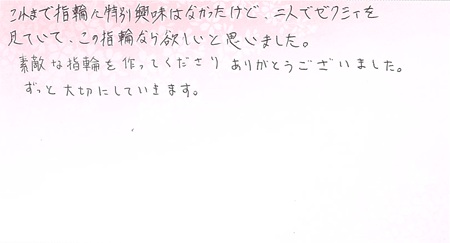 これまで指輪に特別興味はなかったけど、二人でゼクシィを
見ていて、この指輪なら欲しいと思いました。
素敵な指輪を作ってくださりありがとうございました。
ずっと大切にしていきます。